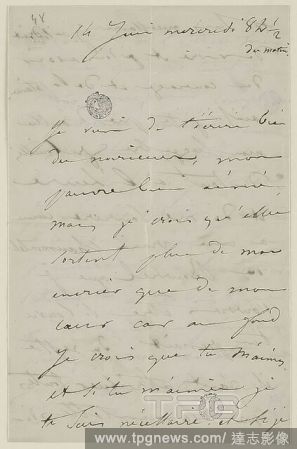 14 Juin mercredi 8h ½
du matin
Je viens de t'écrire bien
des noirceurs, mon
pauvre bien aimé
mais je crois qu'elles
sortent plus de mon
encrier que de mon
cœur car au fond
je crois que tu m'aimes
et si tu m'aimes je
te suis nécessaire et si je
TPG
www.tpgnews.com / 達志影像